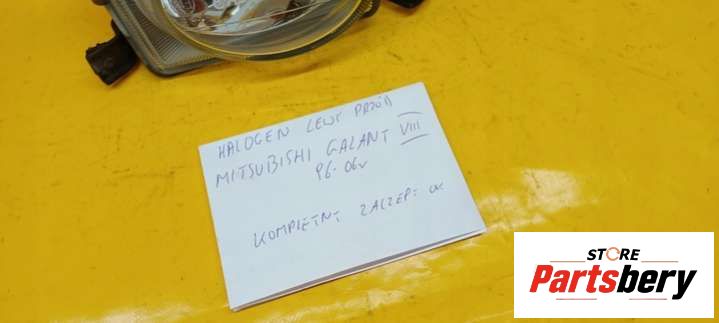 HALOGEN LEWY PRZÓD
MITSUBISHI GALANT VIII
96-06r
KOMPLETNY ZACZEPY OK
STORE
Partsbery